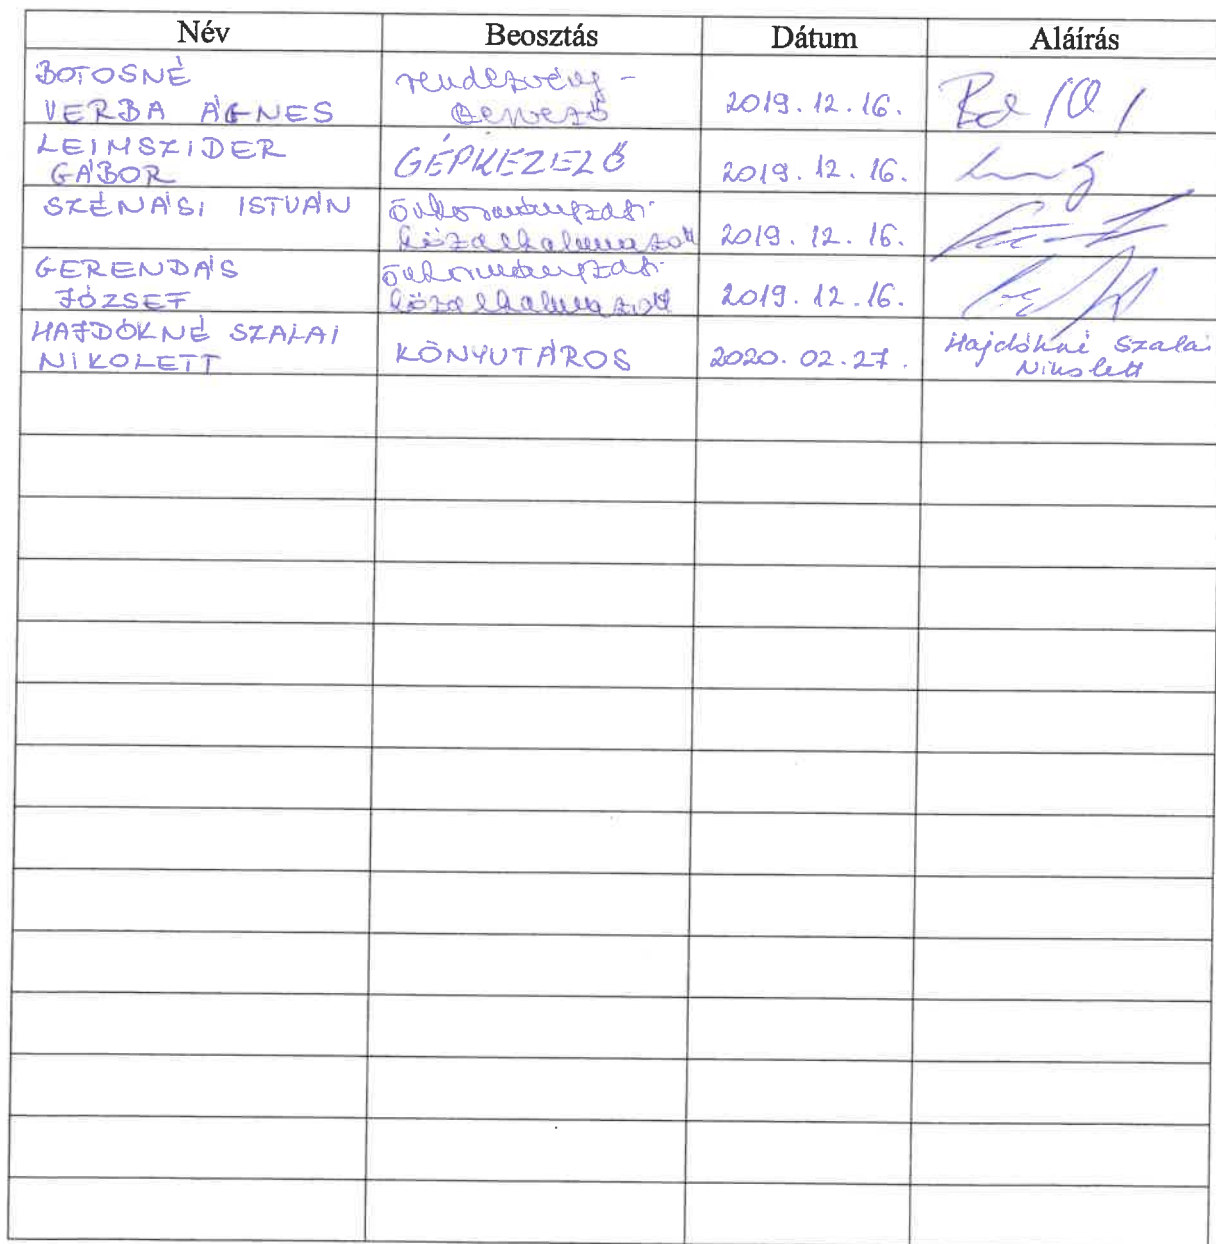 Név Beosztás Dátum Aláírás
BOTOSNÉ
VERBA ÁGNES
rendezvény-
szervező
2019. 12. 16.
LEIMSZIDER
GÁBOR
GÉPKEZELŐ
2019. 12. 16.
SZÉNÁSI ISTVÁN
önkormányzati
közalkalmazott
2019. 12. 16.
GERENDÁS
JÓZSEF
önkormányzati
közalkalmazott
2019. 12. 16.
HAJDÓKNÉ SZALAI
NIKOLETT
KÖNYVTÁROS
2020. 02. 27.
Hajdókné Szalai
Nikolett